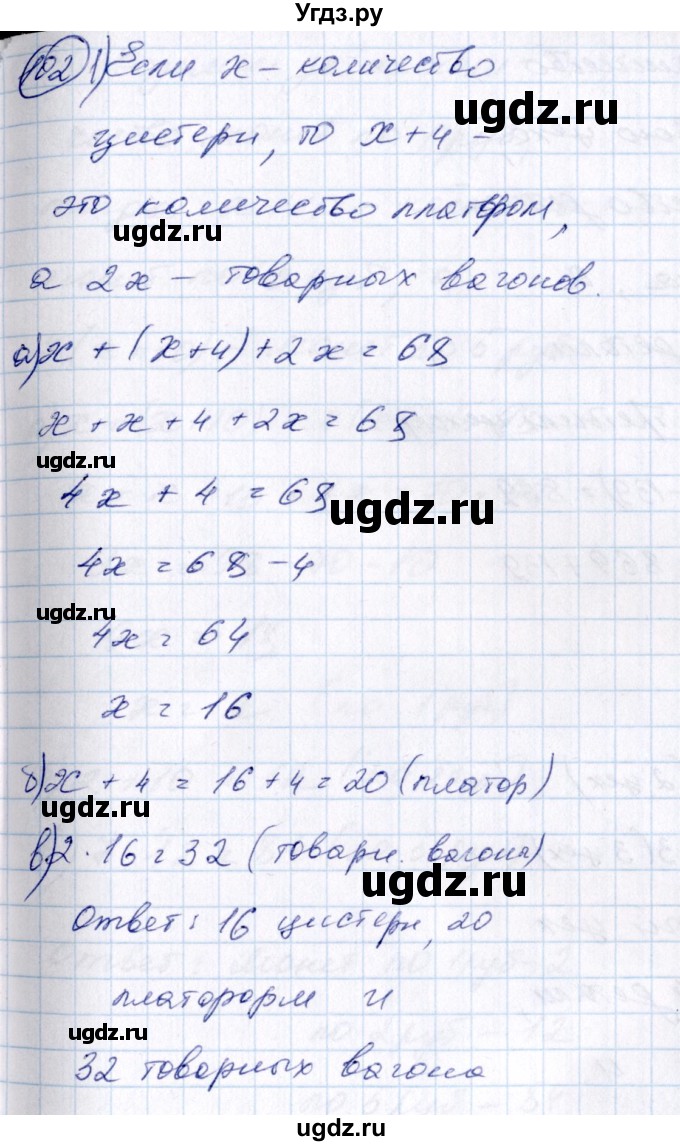 Угдз.ру
102 1) Если x – количество
цистерн, то x+4 –
это количество платформ,
ugdz.ru
а 2x – товарных вагонов.
ugdz.ru
а) x + (x+4) + 2x = 68
x + x + 4 + 2x = 68
ugdz.ru
4x + 4 = 68
ugdz.ru
4x = 68 – 4
ugdz.ru
4x = 64
x = 16
б) x + 4 = 16 + 4 = 20 (платфор)
ugdz.ru
в) 2 · 16 = 32 (товарн. вагона)
ugdz.ru
Ответ: 16 цистерн, 20
платформ и
ugdz.ru
32 товарных вагона
ugdz.ru